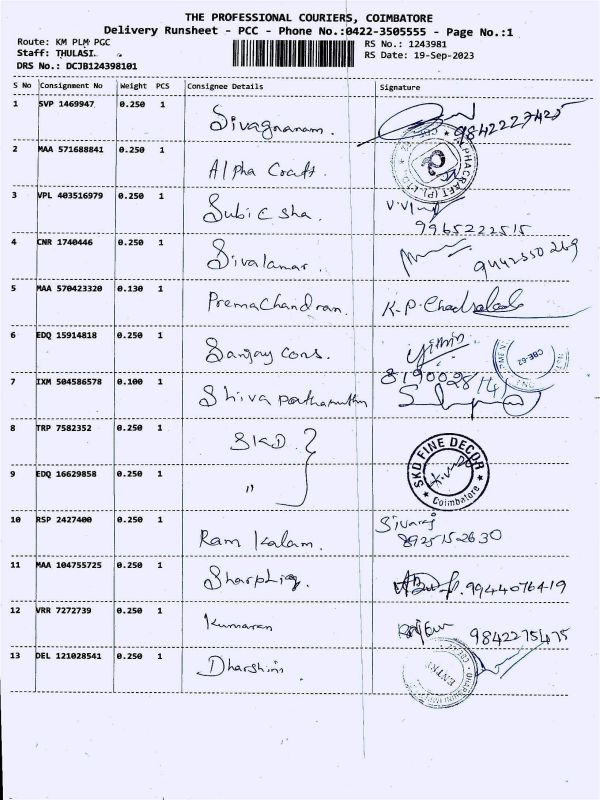 THE PROFESSIONAL COURIERS, COIMBATORE
Delivery Runsheet - PCC - Phone No.:0422-3505555 - Page No.:1
Route: KM PLM PGC
RS No.: 1243981
Staff: THULASI.
RS Date: 19-Sep-2023
DRS No.: DCJB124398101
S No Consignment No Weight PCS Consignee Details Signature
1 SVP 1469947 0.250 1 Sivagnanam. 9842227425
2 MAA 571688841 0.250 1 Alpha Craft.
3 VPL 403516979 0.250 1 Subiksha.
9965222515
4 CNR 1740446 0.250 1 9442550269
5 MAA 570423320 0.130 1 PremaChandran.
6 EDQ 15914818 0.250 1 Sanjay Cons. CBE-62
7 IXM 504586578 0.100 1
8 TRP 7582352 0.250 1 SKD SKD FINE DECOR
Coimbatore
9 EDQ 16629858 0.250 1 "
10 RSP 2427400 0.250 1 Ram Kalam. Sivaraj
8925152630
11 MAA 104755725 0.250 1 9944076419
12 VRR 7272739 0.250 1 Kumaran 9842275475
13 DEL 121028541 0.250 1 Dharshini ENTRY